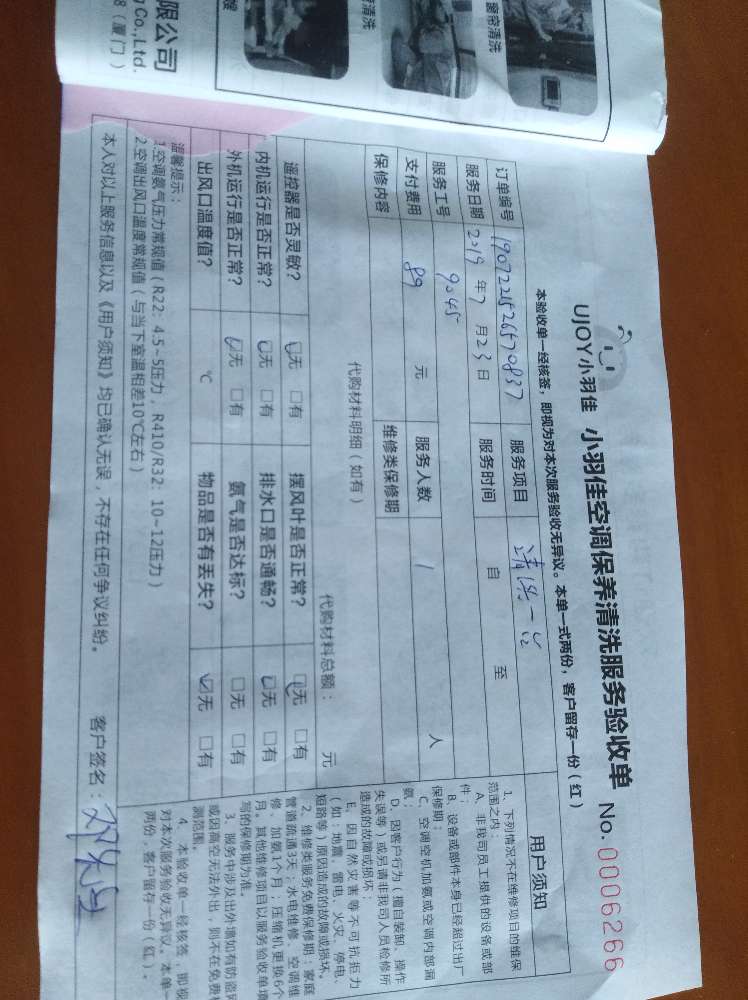 限公司
g Co.,Ltd.
8（厦门）
窗帘清洗
清洗
UJOY小羽佳 小羽佳空调保养清洗服务验收单 No. 0006266
本验收单一经核签，即视为对本次服务验收无异议。本单一式两份，客户留存一份（红）
订单编号 服务项目 清洗一台
服务日期 2019 年 7 月 23 日 服务时间 自 至
服务工号 9045
支付费用 89 元 服务人数 1 人
保修内容 维修类保修期
代购材料明细（如有）
代购材料总额： 元
遥控器是否灵敏？ 无 有 摆风叶是否正常？ 无 有
内机运行是否正常？ 无 有 排水口是否通畅？ 无 有
外机运行是否正常？ 无 有 氨气是否达标？ 无 有
出风口温度值？ ℃ 物品是否有丢失？ 无 有
温馨提示：
1.空调氨气压力常规值（R22：4.5~5压力，R410/R32：10~12压力）
2.空调出风口温度常规值（与当下室温相差10℃左右）
本人对以上服务信息以及《用户须知》均已确认无误，不存在任何争议纠纷。 客户签名：
用户须知
1、下列情况不在维修项目的维保
范围之内：
A、非我司员工提供的设备或部
件；
B、设备或部件本身已经超过出厂
保修期；
C、空调空机加氨或空调内部漏
氨；
D、因客户行为（擅自装卸、操作
失误等）或另请非我司人员检修所
造成的故障或损坏；
E、因自然灾害等不可抗拒力
（如：地震、雷电、火灾、停电、
短路等）原因造成的故障或损坏。
2、维修类服务免费保修期：家庭
管道疏通3天；水电维修、空调维
修、加氨1个月；压缩机更换6个
月。其他维修项目以服务验收单填
写的保修期为准。
3、服务中涉及出外墙如有防盗网
或因高空无法外出，则不在免费检
测范围。
4、本验收单一经核签，即视
对本次服务验收无异议。本单一
两份，客户留存一份（红）。